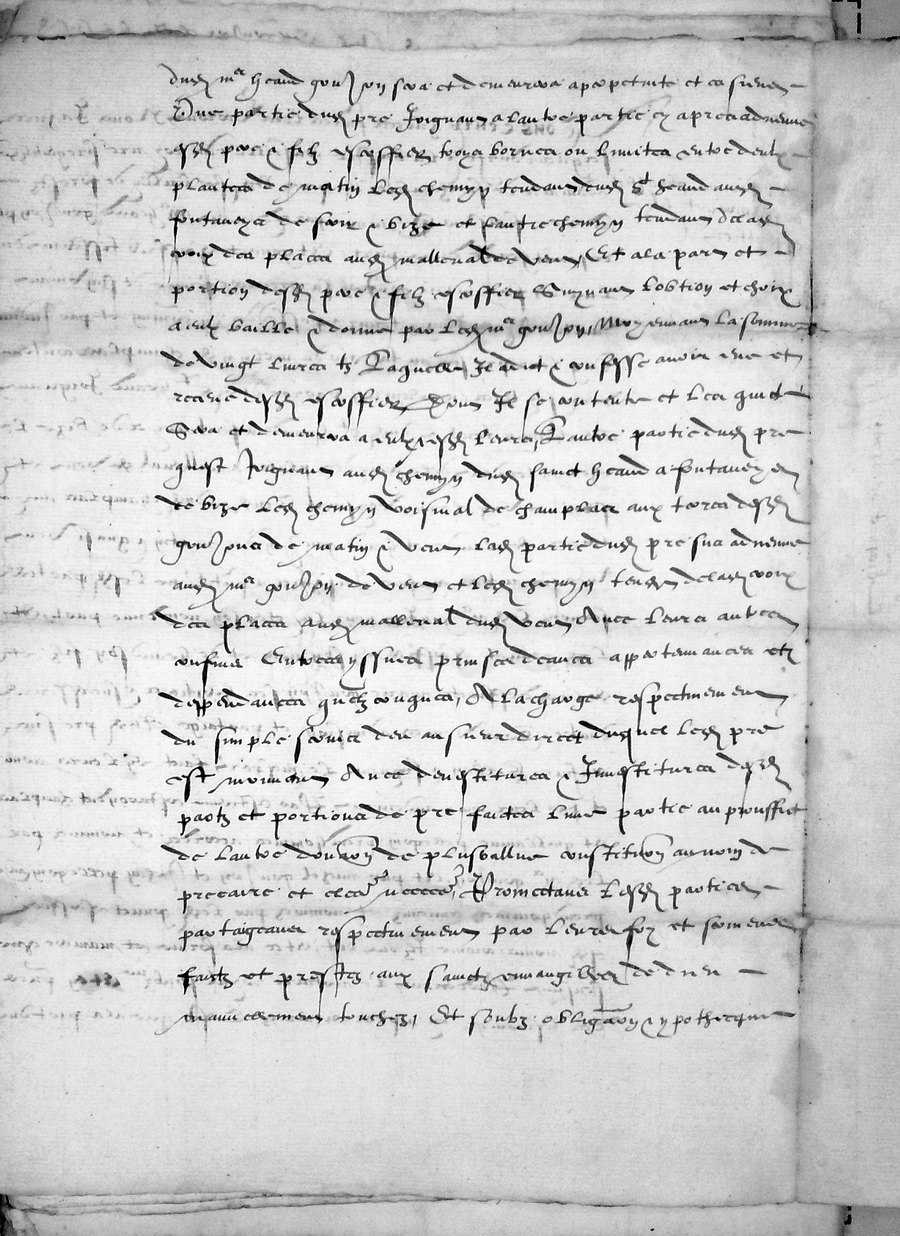 dud mre heand gonson sera et demeurera a perpetuite et ce sienen
Une partie dud pre joignant a lautre partie cy apres advenue
esd pere & filz escoffier troys bornes ou limites entre deulx
plantees de matin led chemyn tendant dud St heand aud
fontaneys de soir & bize et lautre chemyn tendant de lad
croix des places aud mallleval de vent, Et a la part et
portion desd pere & filz escoffier suyvant lobtion et choix
a eulx baillé & donné par led mre gonson, Moyenant la somme
de vingt livres tz laquelle Il a dict & confessé avoir eue et
receue desd escoffier dont Il se contente et les quicte
Sera et demeurera a eulx & esd leurs, Lautre partie dud pre
quest joignant aud chemyn dud sainct heand a fontaneys
de bize led chemyn voisinal de champlacs aux terres desd
gonsons de matin & vent lad partie dud pre sus advenue
aud mre gonson de vent et led chemyn tendt de lad croix
des places aud malleval dud vent Avec leurs autres
confins Entrees yssues prinses deaues appertenances et
deppendances quelzconques, A la charge respectivement
du simple servis deu au sieur direct duquel led pre
est mouvent Avec devestitures & Investitures desd
partz et portions de pre faictes lune partie au prouffict
de lautre donaon de plusvallue constitution au nom de
precaire et Promectans lesd parties
partaigeans respectivement par leurs foy et serement
faictz et prestez aux sainctz euvangilles de dieu
manuellement touchez, Et soubz obligaon & ypothecque